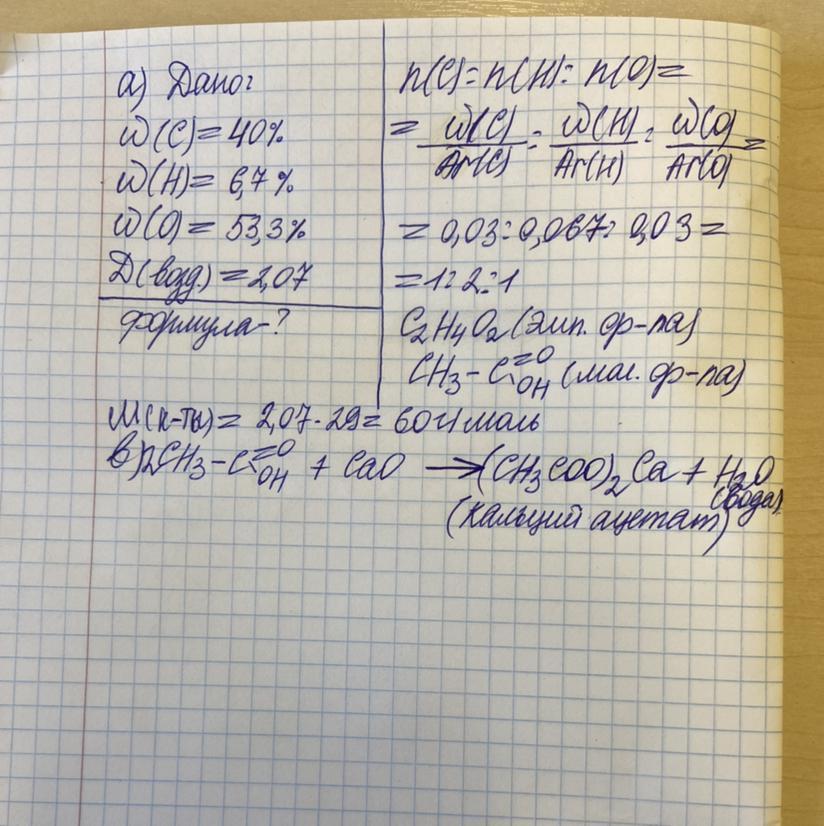 а) Дано:
w(C) = 40%
w(H) = 6,7%
w(O) = 53,3%
D(возд.) = 2,07
формула-?
n(C): n(H): n(O) =
= w(C)/Ar(C) : w(H)/Ar(H) : w(O)/Ar(O) =
= 0,03:0,067:0,03 =
= 1:2:1
C2H4O2 (эмп. ф-ла)
CH3-C=O OH (мол. ф-ла)
M(к-ты) = 2,07·29 = 60 г/моль
в) 2CH3-C=O OH + CaO → (CH3COO)2Ca + H2O
(вода)
(кальций ацетат)